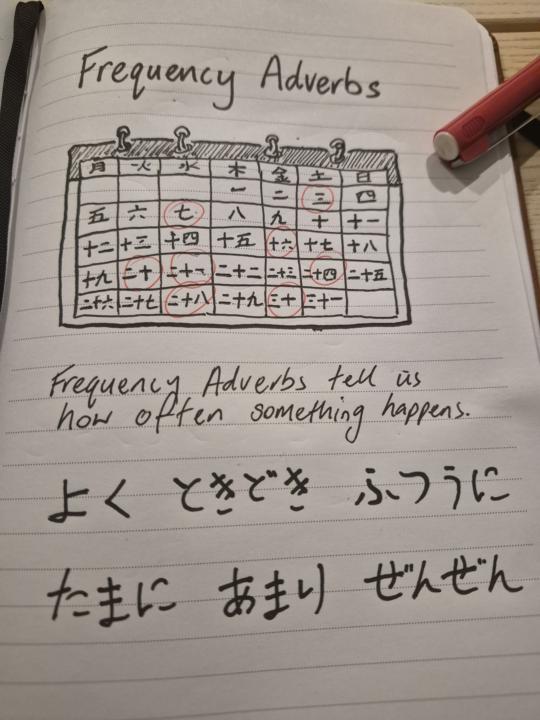 Frequency Adverbs
月 火 水 木 金 土 日
一 二 三 四
五 六 七 八 九 十 十一
十二 十三 十四 十五 十六 十七 十八
十九 二十 二十一 二十二 二十三 二十四 二十五
二十六 二十七 二十八 二十九 三十 三十一
Frequency Adverbs tell us
how often something happens.
よく ときどき ふつうに
たまに あまり ぜんぜん